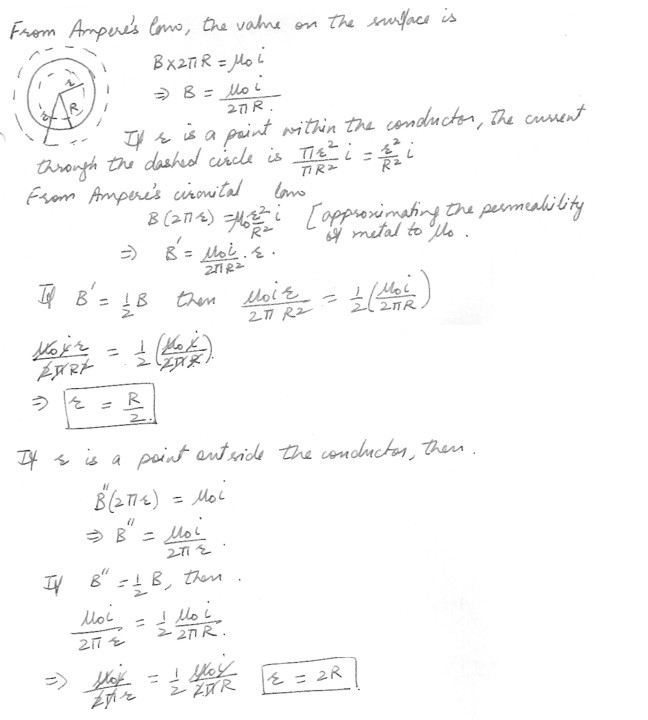 From Ampere's law, the value on the surface is
B×2πR = μ₀i
⇒ B = μ₀i / 2πR.
r
R
r
If r is a point within the conductor, the current
through the dashed circle is πr²/πR² i = r²/R² i
From Ampere's circuital law
B(2πr) = μ₀ r²/R² i [approximating the permeability
of metal to μ₀.
⇒ B' = μ₀i/2πR² . r.
If B' = 1/2 B then μ₀ir/2πR² = 1/2 (μ₀i/2πR)
μ₀ir/2πR² = 1/2 (μ₀i/2πR)
⇒ r = R/2.
If r is a point outside the conductor, then.
B''(2πr) = μ₀i
⇒ B'' = μ₀i/2πr.
If B'' = 1/2 B, then.
μ₀i/2πr = 1/2 μ₀i/2πR.
⇒ μ₀i/2πr = 1/2 μ₀i/2πR r = 2R